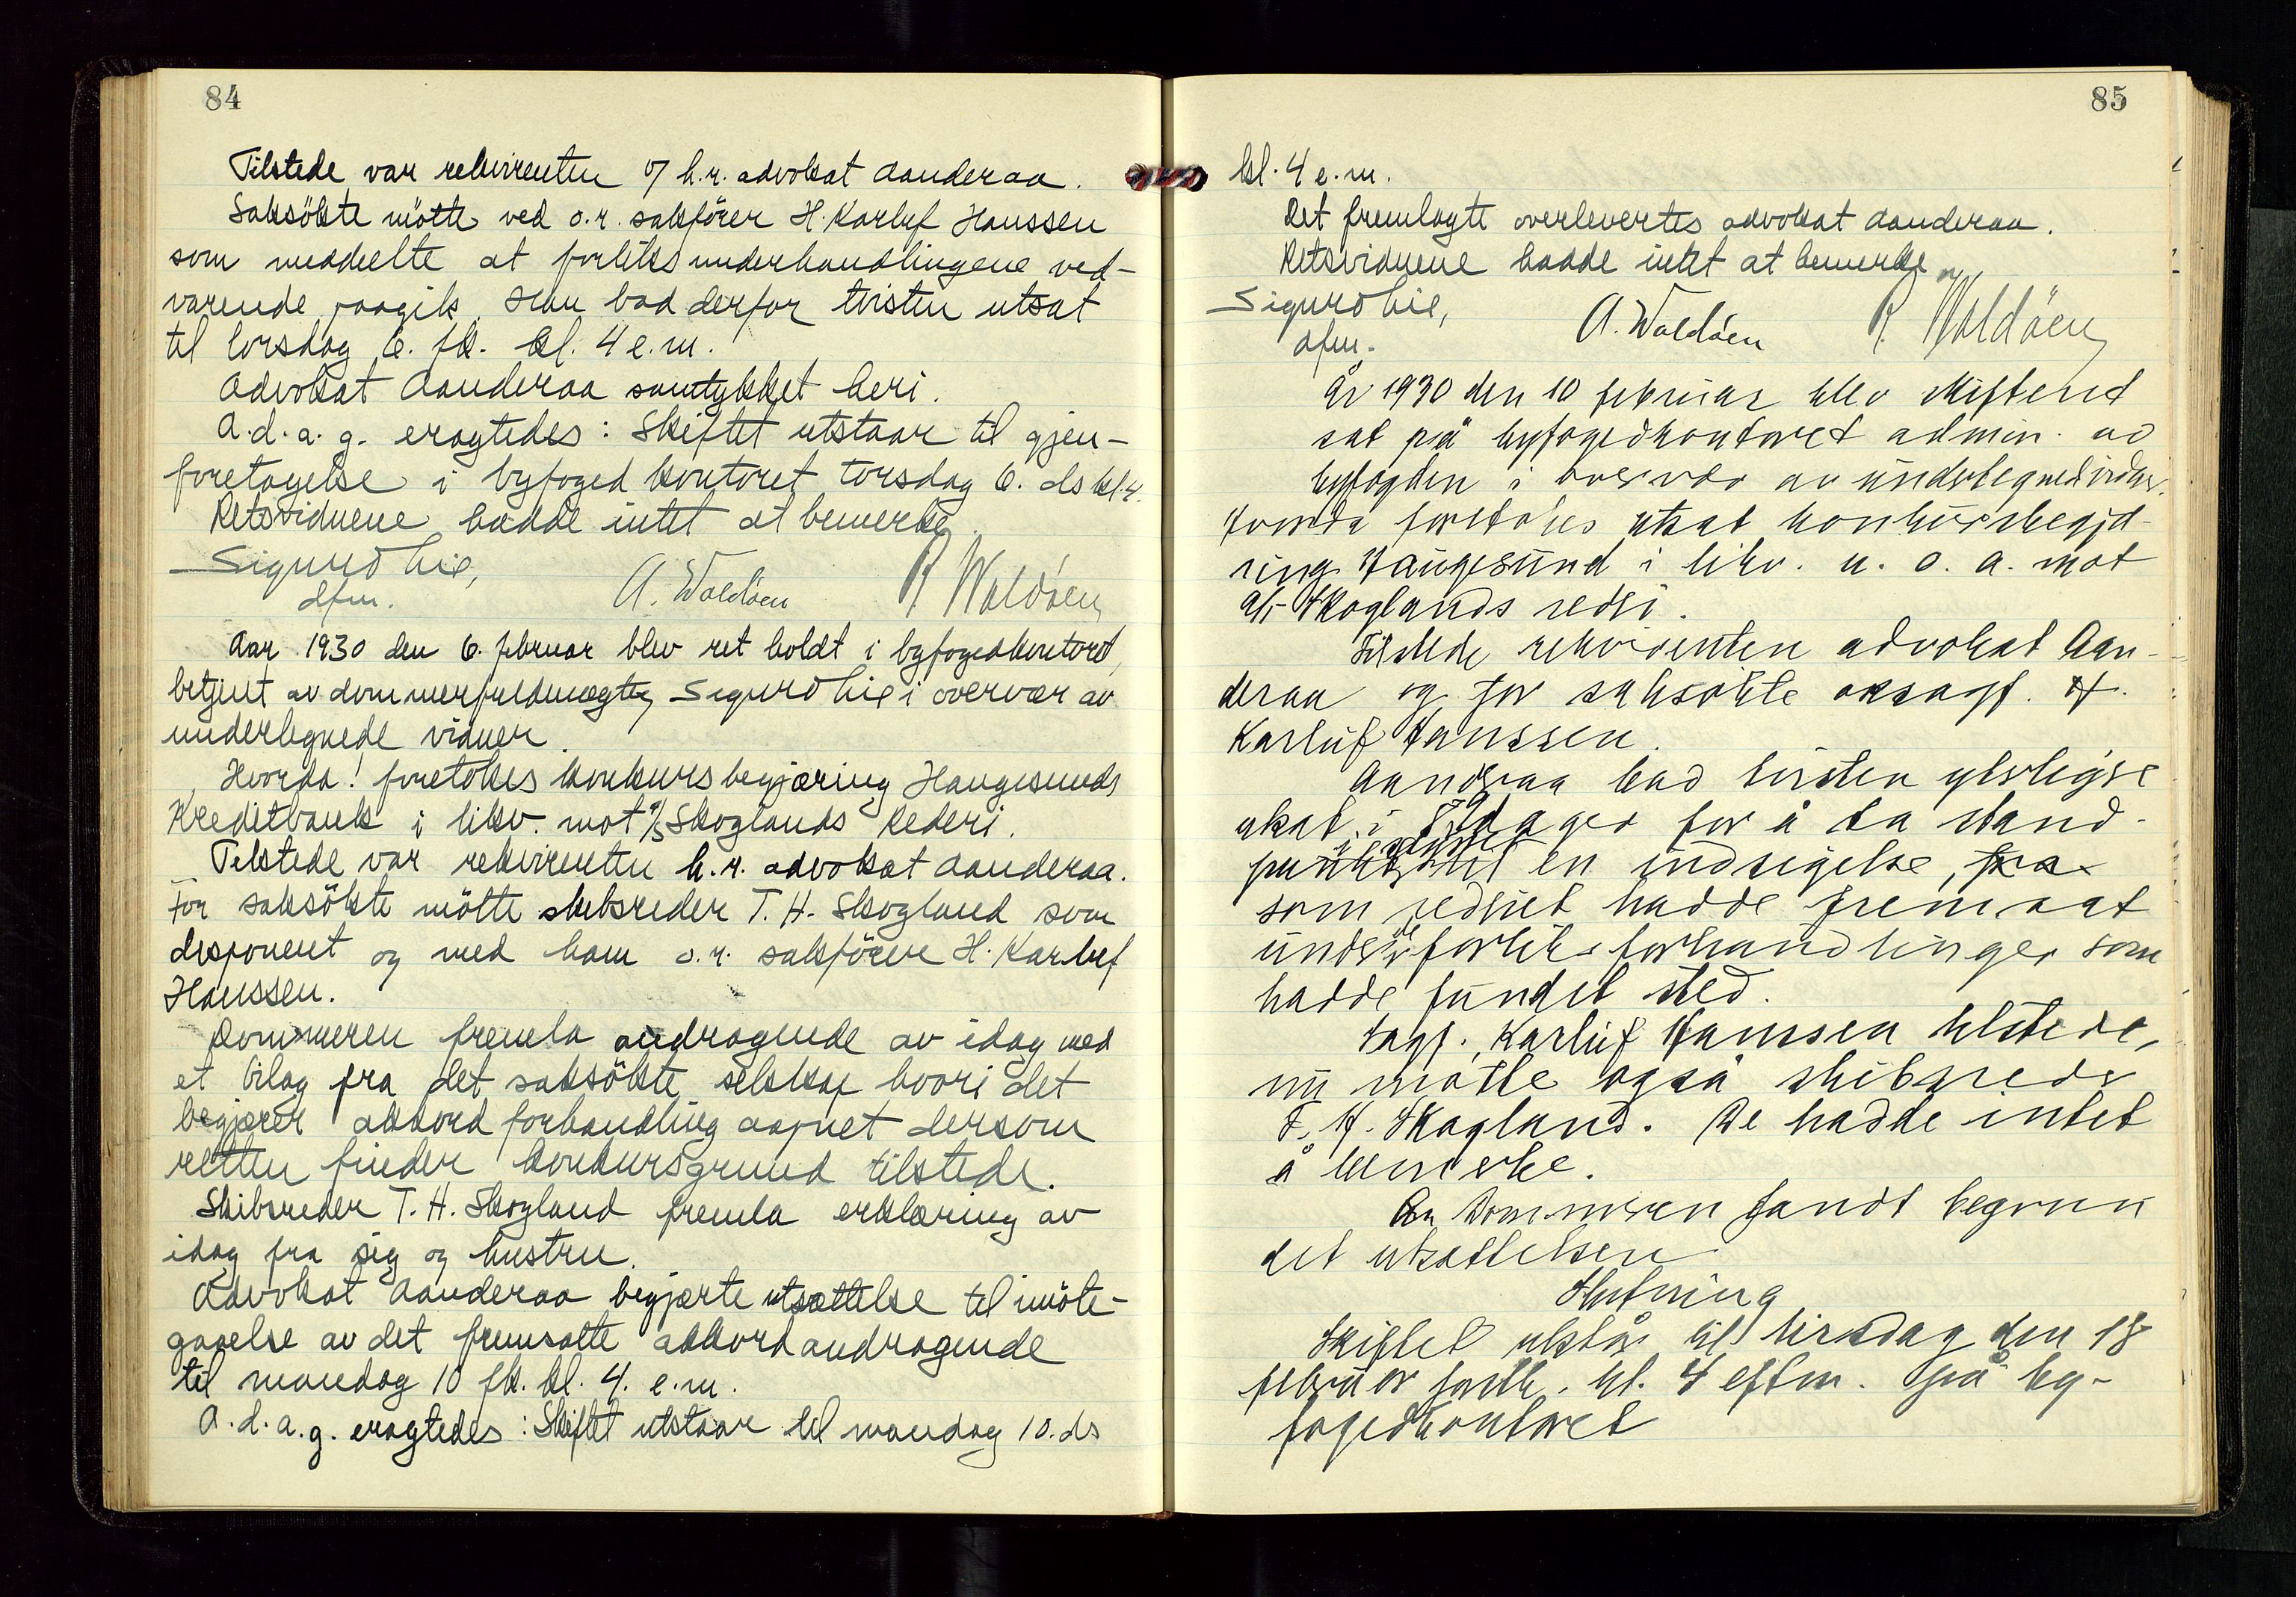 84
Tilstede var rekvirenten v/ h.r. advokat Aanderaa.
Saksökte mötte ved o.r. sakförer H. Karluf Hanssen
som meddelte at forliksunderhandlingene ved-
varende paagik. Han bad derfor tvisten utsat
til torsdag 6. ds. kl. 4 e.m.
Advokat Aanderaa samtykket heri.
A.d.a.g. eragtedes: Skiftet utstaar til gjen-
foretagelse i byfogedkontoret torsdag 6. ds kl 4.
Retsvidnene hadde intet at bemerke
Sigurd Lie,
dfm.
A. Waldöen R Waldöen
Aar 1930 den 6. februar blev ret holdt i byfogedkontoret,
betjent av dommerfuldmægtig Sigurd Lie i overvær av
undertegnede vidner.
Hvorda! foretokes konkursbegjæring Haugesunds
Kreditbank i likv. mot a/s Skoglands Rederi.
Tilstede var rekvirenten h.r. advokat Aanderaa.
For saksökte mötte skibsreder T. H. Skogland som
disponent og med ham o.r. sakförer H. Karluf
Hanssen.
Dommeren fremla andragende av idag med
et bilag fra det saksökte selskap hvori det
begjærer akkordforhandling aapnet dersom
retten finder konkursgrund tilstede.
Skibsreder T. H. Skogland fremla erklæring av
idag fra sig og hustru.
Advokat Aanderaa begjærte utsættelse til imöte-
gaaelse av det fremsatte akkordandragende
til mandag 10 ds. kl. 4. e.m.
A.d.a.g. eragtedes: Skiftet utstaar til mandag 10. ds
85
kl. 4 e.m.
Det fremlagte overlevertes advokat Aanderaa.
Retsvidnene hadde intet at bemerke
Sigurd Lie,
dfm.
A. Waldöen R. Waldöen
År 1930 den 10 februar blev skifteret
sat på byfogedkontoret admin. av
byfogden i overvær av undertegned vidner.
Hvorda foretokes utsat konkursbegjæ-
ring Haugesund i likv. u. o. a. mot
A/s Skoglands rederi.
Tilstede rekvirenten advokat Aan-
deraa og for saksökte orsagf. H.
Karluf Hanssen.
Aanderaa bad tvisten yterligere
utsat i 8 dager for å ta stand-
punkt til en indsigelse,
som rederiet hadde fremsat
under de forliksforhandlinger som
hadde fundet sted.
Sagf. Karluf Hanssen tilstede,
nu mötte også skibsreder
T. H. Skogland. De hadde intet
å bemerke.
Dommeren fandt begrun
det utsættelsen
Slutning
Skiftet utstår til tirsdag den 18
februar förstk. kl. 4 eftm. på by-
fogedkontoret